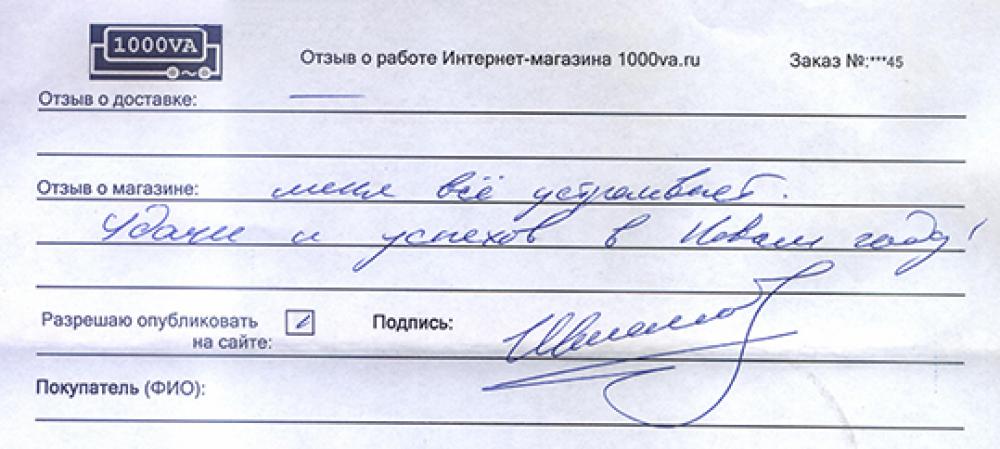 1000VA
Отзыв о работе Интернет-магазина 1000va.ru Заказ №:***45
Отзыв о доставке: —
Отзыв о магазине: меня всё устраивает.
Удачи и успехов в Новом году!
Разрешаю опубликовать
на сайте:
Подпись:
Покупатель (ФИО):